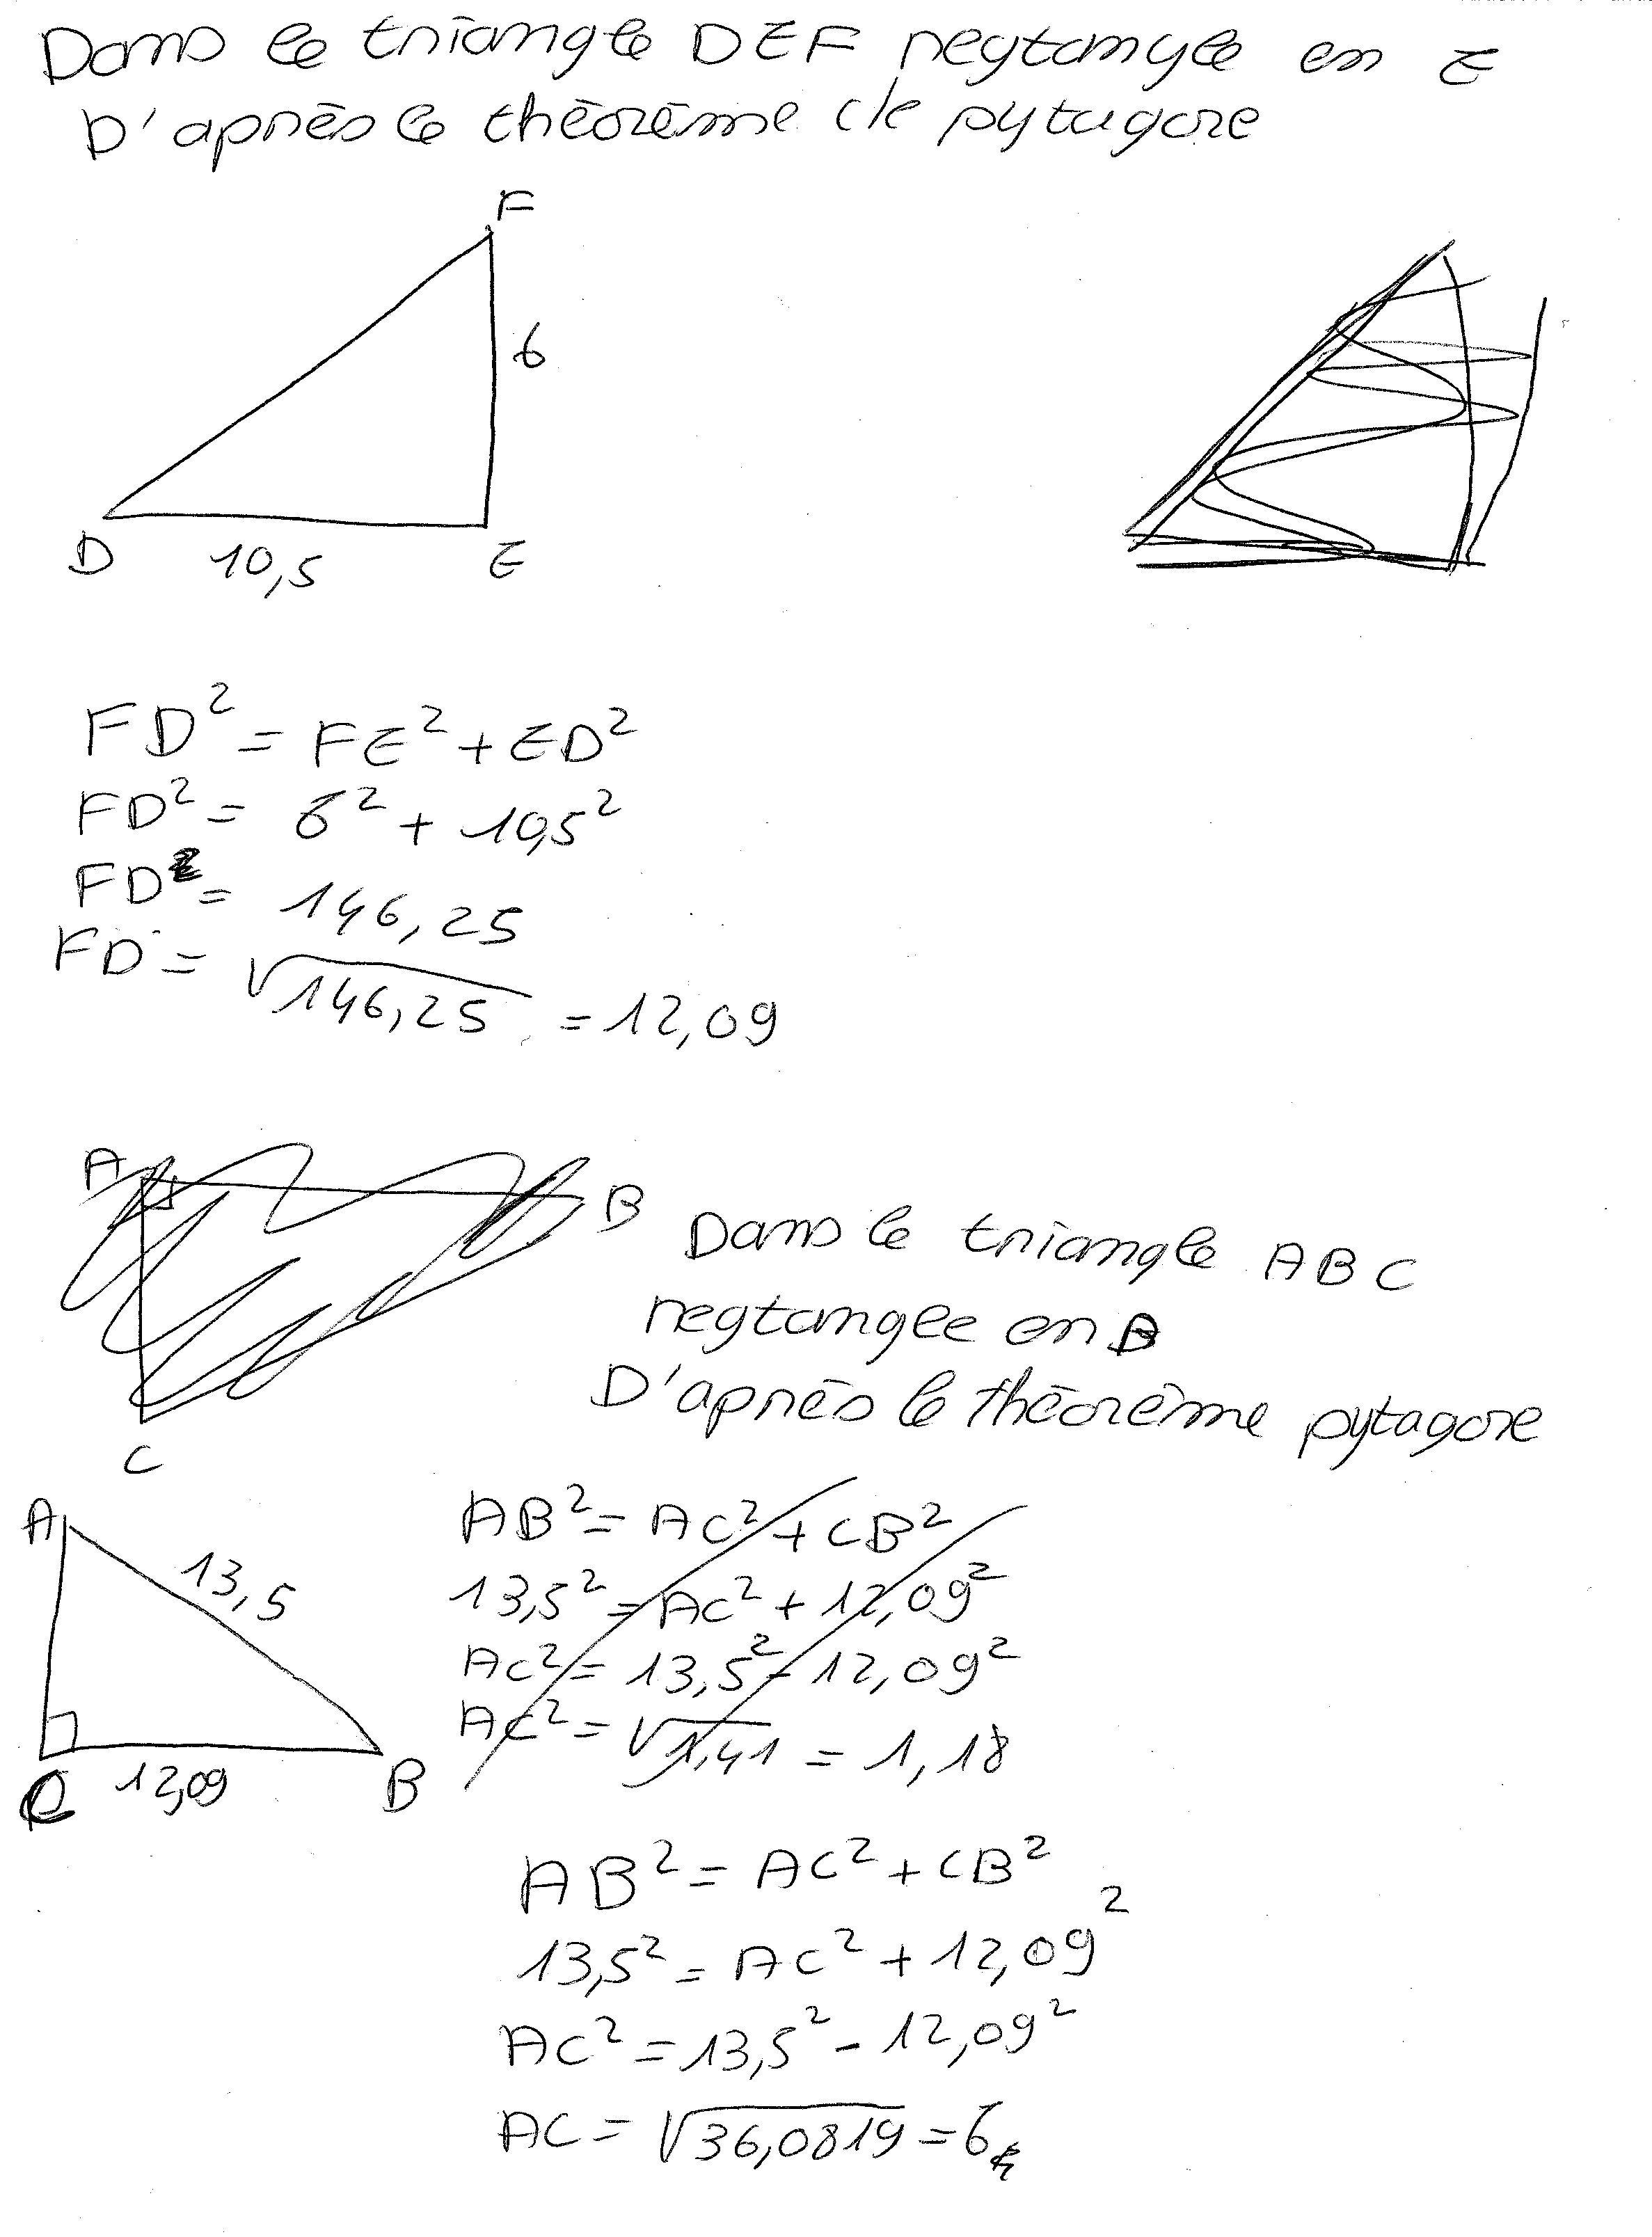 Dans le triangle DEF regtangle en E
D'après le théorème de pytagore
F
6
D 10,5 E
FD² = FE² + ED²
FD² = 6² + 10,5²
FD² = 146,25
FD = √146,25 = 12,09
A
B
Dans le triangle ABC
regtanglee en B
D'après le théorème pytagore
C
A
13,5
C 12,09 B
AB² = AC² + CB²
13,5² = AC² + 12,09²
AC² = 13,5² - 12,09²
AC² = √1,41 = 1,18
AB² = AC² + CB²
13,5² = AC² + 12,09²
AC² = 13,5² - 12,09²
AC = √36,0819 = 6